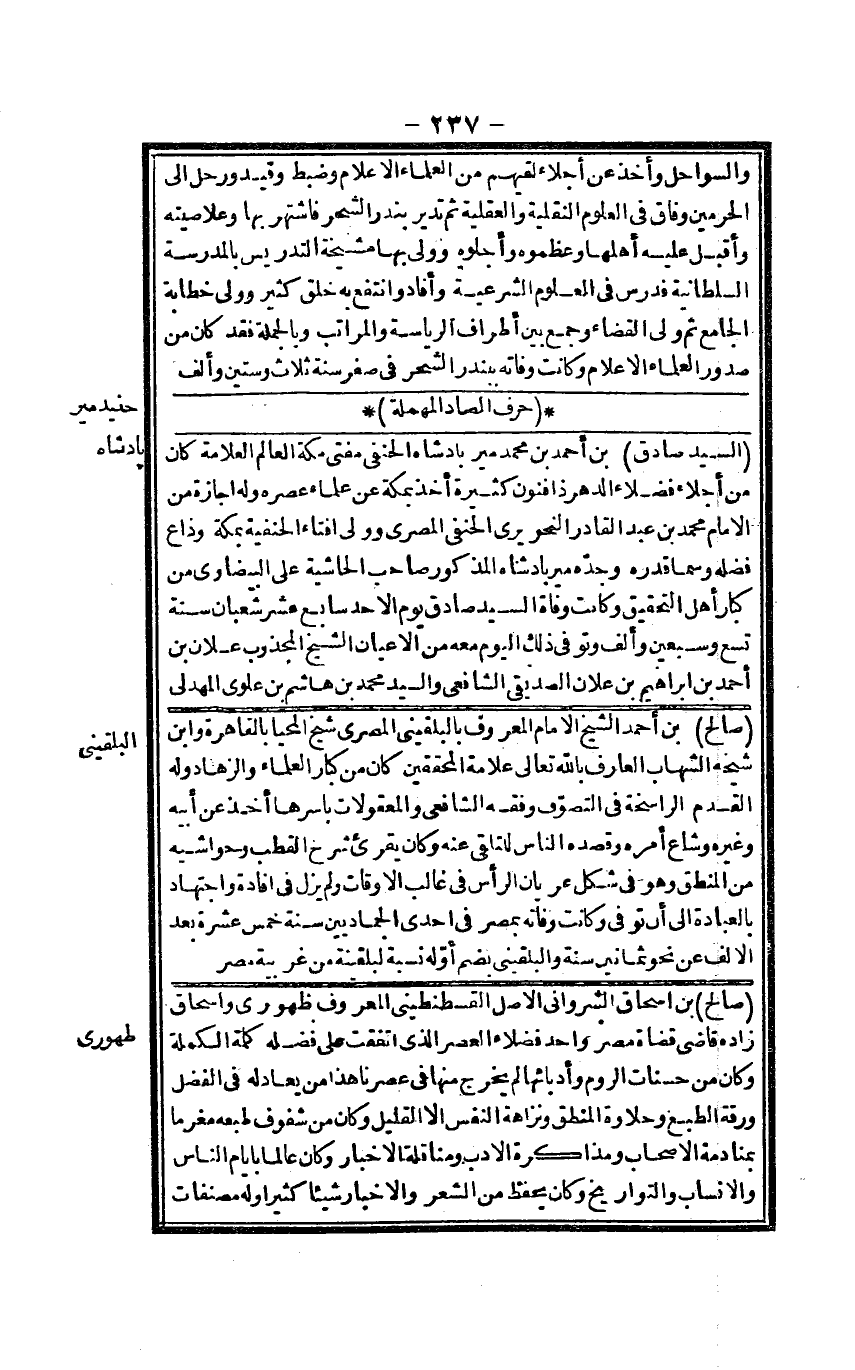 - ٢٣٧ -
والسواحل وأخذ عن أجلاء لقيهم من العلماء الاعلام وضبط وقيد ورحل الى
الحرمين وفاق فى العلوم النقلية والعقلية ثم تدير بندر الشحر فاشتهر بها وعلا صيته
وأقبل عليه أهلها وعظموه وأجلوه وولى بها مشيخة التدريس بالمدرسة
السلطانية فدرس فى العلوم الشرعية وأفاد وانتفع به خلق كثير وولى خطابة
الجامع ثم ولى القضاء وجمع بين أطراف الرياسة والمراتب وبالجملة فقد كان من
صدور العلماء الاعلام وكانت وفاته ببندر الشحر فى صفر سنة ثلاث وستين وألف
*(حرف الصاد المهملة)*
حفيد مير
پادشاه
(السيد صادق) بن أحمد بن محمد مير بادشاه الحنفى مفتى مكة العالم العلامة كان
من أجلاء فضلاء الدهر ذا فنون كثيرة أخذ بمكة عن علماء عصره وله اجازة من
الامام محمد بن عبد القادر النحويرى الحنفى المصرى وولى افتاء الحنفية بمكة وذاع
فضله وسما قدره وجده مير بادشاه المذكور صاحب الحاشية على البيضاوى من
كبار أهل التحقيق وكانت وفاة السيد صادق يوم الاحد سابع عشر شعبان سنة
تسع وسبعين وألف وتوفى ذلك اليوم معه من الاعيان الشيخ المجذوب علان بن
أحمد بن ابراهيم بن علان الصديقى الشافعى والسيد محمد بن هاشم بن علوى المهدلى
البلقينى
(صالح) بن أحمد الشيخ الامام المعروف بالبلقينى المصرى شيخ المحيا بالقاهرة وابن
شيخه الشهاب العارف بالله تعالى علامة المحققين كان من كبار العلماء والزهاد وله
القدم الراسخة فى التصوّف وفقه الشافعى والمعقولات باسرها أخذ عن أبيه
وغيره وشاع أمره وقصده الناس للتلقى عنه وكان يقرئ شرح القطب وحواشيه
من المنطق وهو فى شكل عريان الرأس فى غالب الاوقات ولم يزل فى افادة واجتهاد
بالعبادة الى أن توفى وكانت وفاته بمصر فى احدى الجمادين سنة خمس عشرة بعد
الالف عن نحو ثمانين سنة والبلقينى بضم أوّله نسبة لبلقينة من غربية مصر
ظهورى
(صالح) بن اسحاق الشروانى الاصل القسطنطينى المعروف بظهورى واسحاق
زاده قاضى قضاة مصر واحد فضلاء العصر الذى اتفقت على فضله كلمة الكملة
وكان من حسنات الروم وأدبائها لم يخرج منها فى عصرنا هذا من يعادله فى الفضل
ورقة الطبع وحلاوة المنطق ونزاهة النفس الا القليل وكان من شفوف طبعه مغرما
بمنادمة الاصحاب ومذاكرة الادب ومناقلة الاخبار وكان عالما بايام الناس
والانساب والتواريخ وكان يحفظ من الشعر والاخبار شيئا كثيرا وله مصنفات